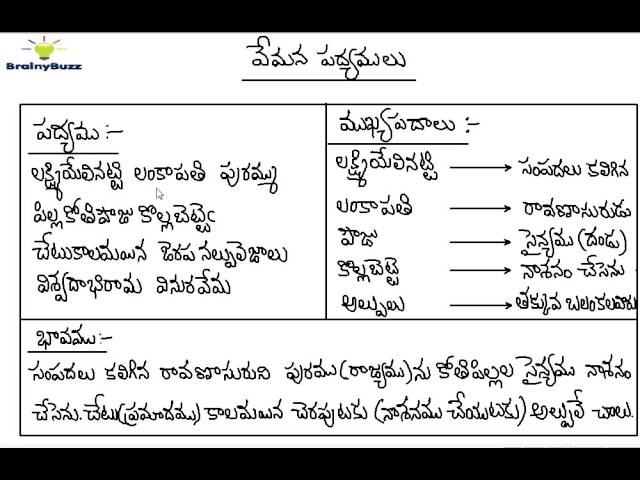 BrainyBuzz
వేమన పద్యములు
పద్యము :-
లక్ష్మియేలినట్టి లంకాపతి పురమ్ము
పిల్లకోతిపౌజు కొల్లబెట్టెఁ
చేటుకాలమయిన జెరప నల్పులెజాలు
విశ్వదాభిరామ వినురవేమ
ముఖ్యపదాలు :-
లక్ష్మియేలినట్టి → సంపదలు కలిగిన
లంకాపతి → రావణాసురుడు
పౌజు → సైన్యము (దండు)
కొల్లబెట్టె → నాశనం చేసెను
అల్పులు → తక్కువ బలంకలవారు
భావము:-
సంపదలు కలిగిన రావణాసురుని పురము(రాజ్యము)ను కోతిపిల్లల సైన్యము నాశనం
చేసెను. చేటు(ప్రమాదము) కాలమయిన చెరపుటకు (నాశనము చేయుటకు) అల్పులే చాలు.